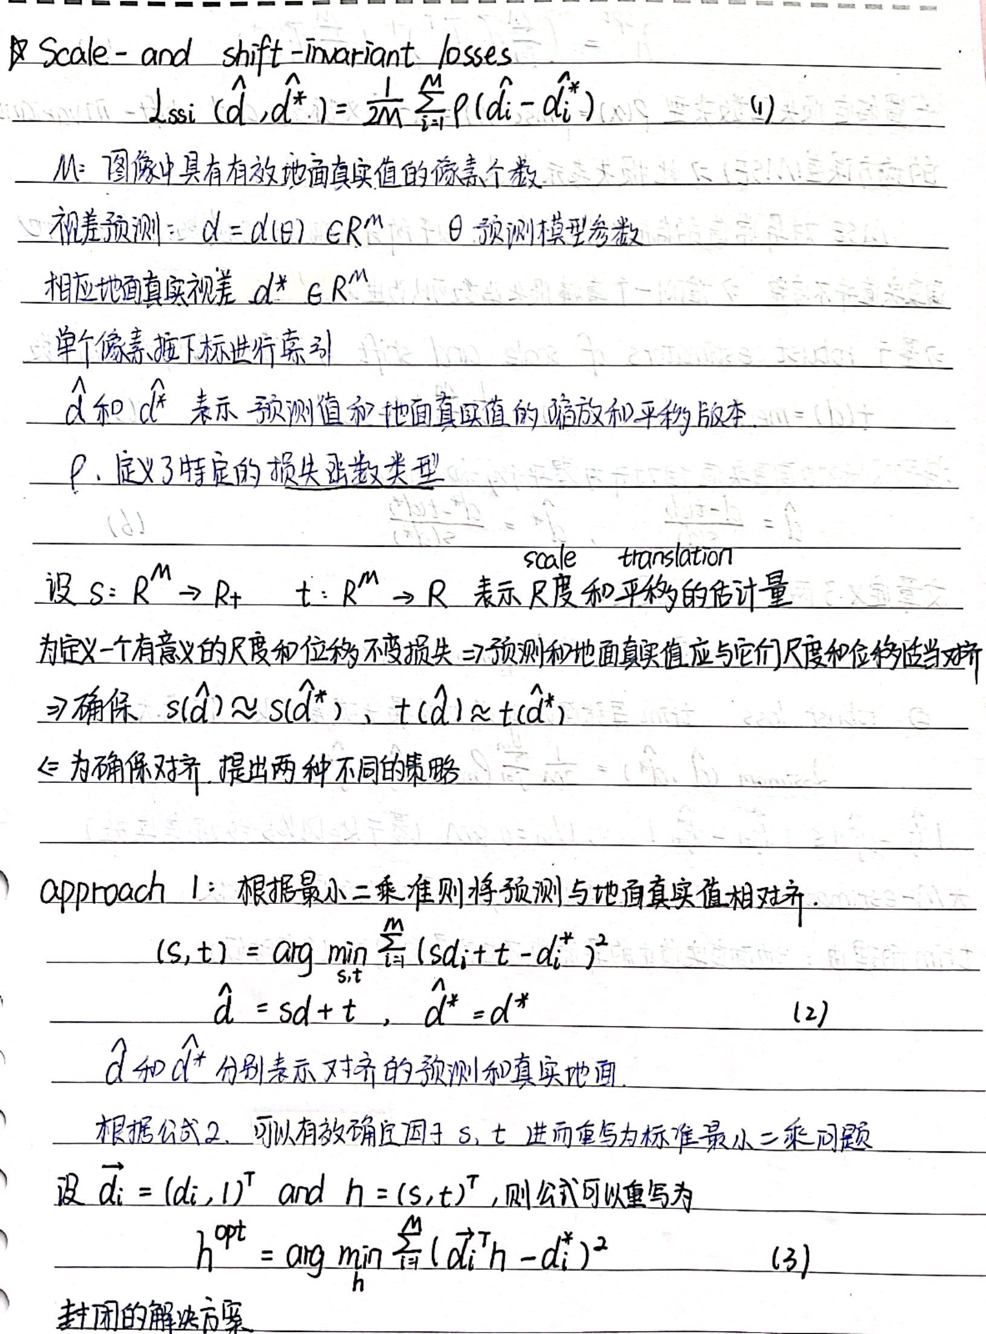 Scale- and shift-invariant losses
Lssi (d̂, d̂*) = 1/2M Σ_{i=1}^{M} ρ(d̂i - d̂i*) (1)
M: 图像中具有有效地面真实值的像素个数
视差预测: d = d(θ) ∈ R^M θ 预测模型参数
相应地面真实视差 d* ∈ R^M
单个像素按下标进行索引
d̂ 和 d̂* 表示 预测值和地面真实值的缩放和平移版本.
ρ. 定义了特定的损失函数类型
scale translation
设 s: R^M → R+ t: R^M → R 表示 尺度和平移的估计量
为定义一个有意义的尺度和位移不变损失 ⇒ 预测和地面真实值应与它们尺度和位移适当对齐
⇒ 确保 s(d̂) ≈ s(d̂*), t(d̂) ≈ t(d̂*)
⇐ 为确保对齐 提出两种不同的策略
approach 1: 根据最小二乘准则将预测与地面真实值相对齐.
(s,t) = arg min_{s,t} Σ_{i=1}^{M} (sdi + t - di*)²
d̂ = sd + t , d̂* = d* (2)
d̂ 和 d̂* 分别表示对齐的预测和真实地面.
根据公式2. 可以有效确定因子 s, t 进而重写为标准最小二乘问题
设 d⃗i = (di, 1)^T and h = (s,t)^T, 则公式可以重写为
h^opt = arg min_h Σ_{i=1}^{M} (d⃗i^T h - di*)² (3)
封闭的解决方案